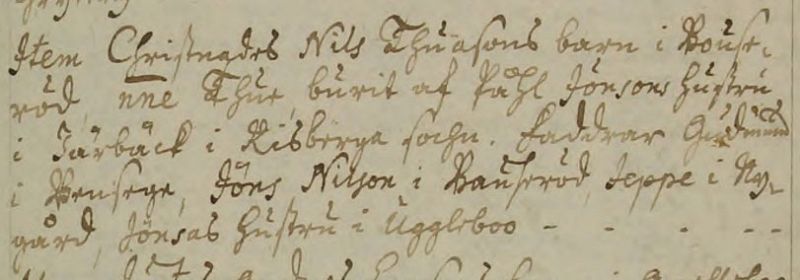 Item Christnades Nils Thuasons barn i Bouse-
röd, nne Thue, burit af Påhl Jönsons hustru
i Järbäck i Risberga sochn. Faddrar Gudmund
i Bensege, Jöns Nilson i Bauseröd, Jeppe i Ny-
gård, Jönsas hustru i Uggleboo - - - - -